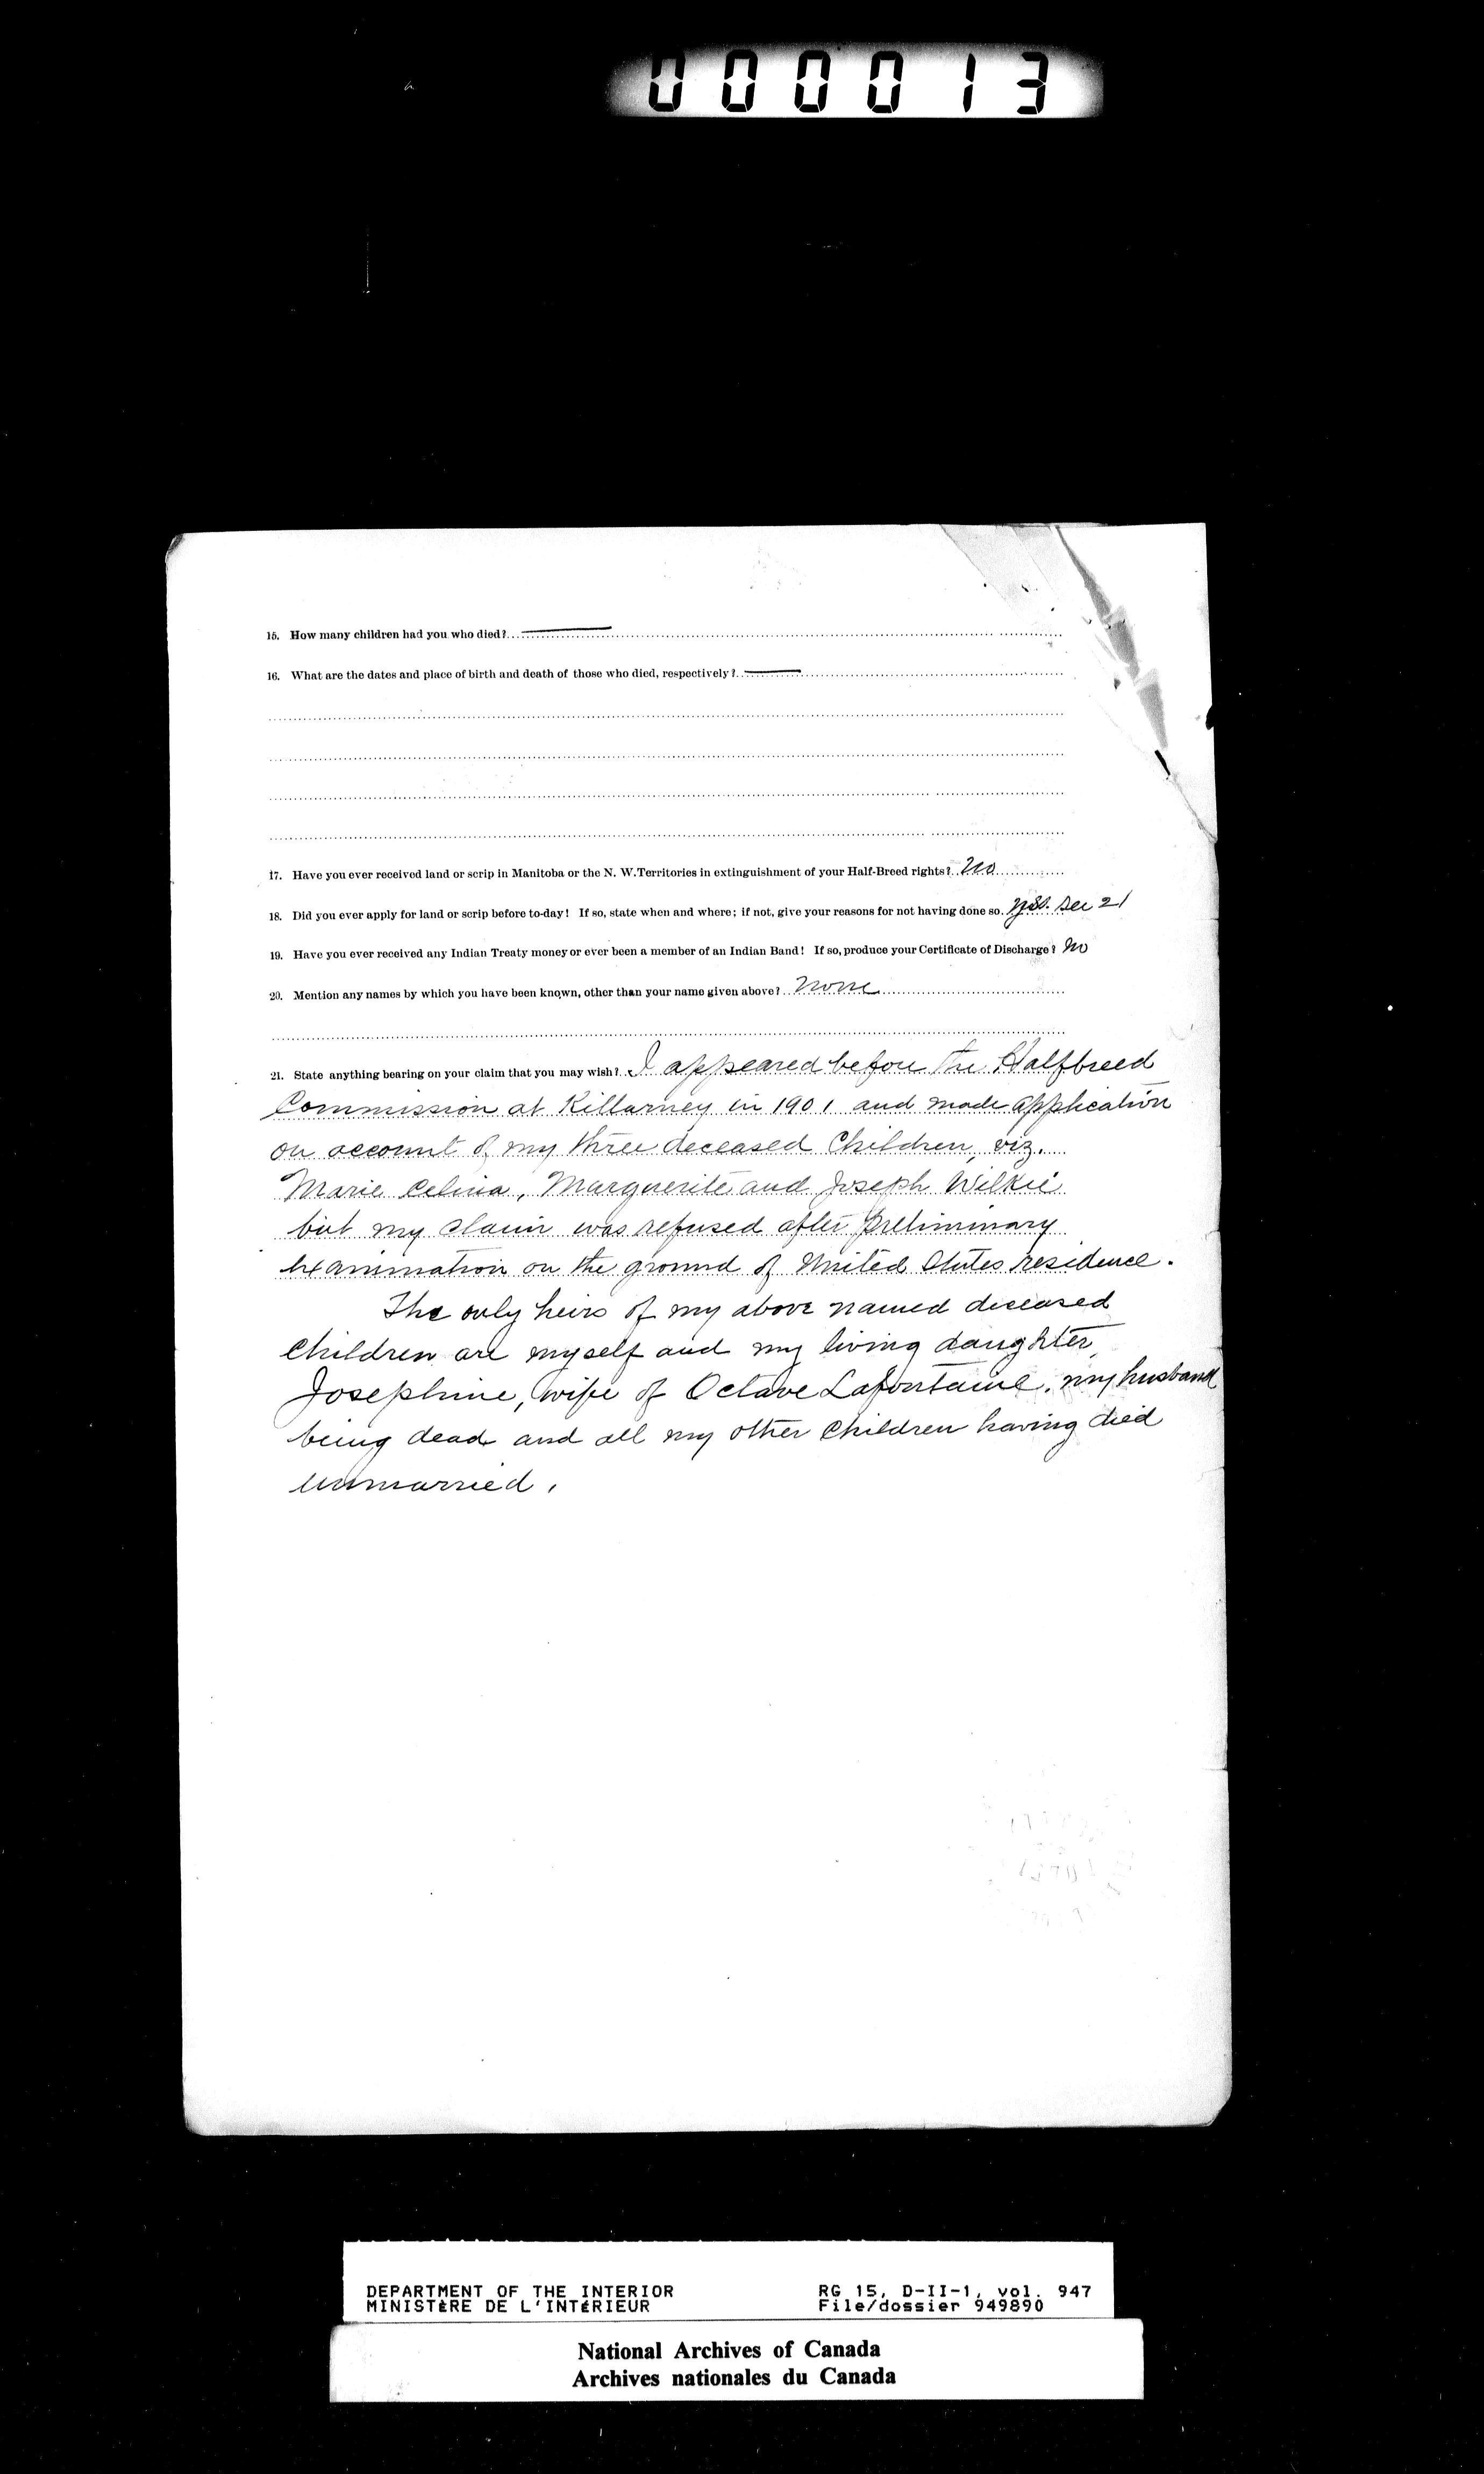 000013
15. How many children had you who died?
16. What are the dates and place of birth and death of those who died, respectively?
17. Have you ever received land or scrip in Manitoba or the N. W. Territories in extinguishment of your Half-Breed rights? No
18. Did you ever apply for land or scrip before to-day! If so, state when and where; if not, give your reasons for not having done so. Yes. See 21
19. Have you ever received any Indian Treaty money or ever been a member of an Indian Band! If so, produce your Certificate of Discharge? No
20. Mention any names by which you have been known, other than your name given above? None
21. State anything bearing on your claim that you may wish? I appeared before the Halfbreed
Commission at Killarney in 1901 and made application
on account of my three deceased Children, viz.
Marie Celina, Marguerite and Joseph Wilkie
but my claim was refused after preliminary
examination on the ground of United States residence.
The only heirs of my above named deceased
children are myself and my living daughter
Josephine, wife of Octave Lafontaine, my husband
being dead and all my other children having died
unmarried.
DEPARTMENT OF THE INTERIOR RG 15, D-II-1, vol. 947
MINISTÈRE DE L'INTÉRIEUR File/dossier 949890
National Archives of Canada
Archives nationales du Canada